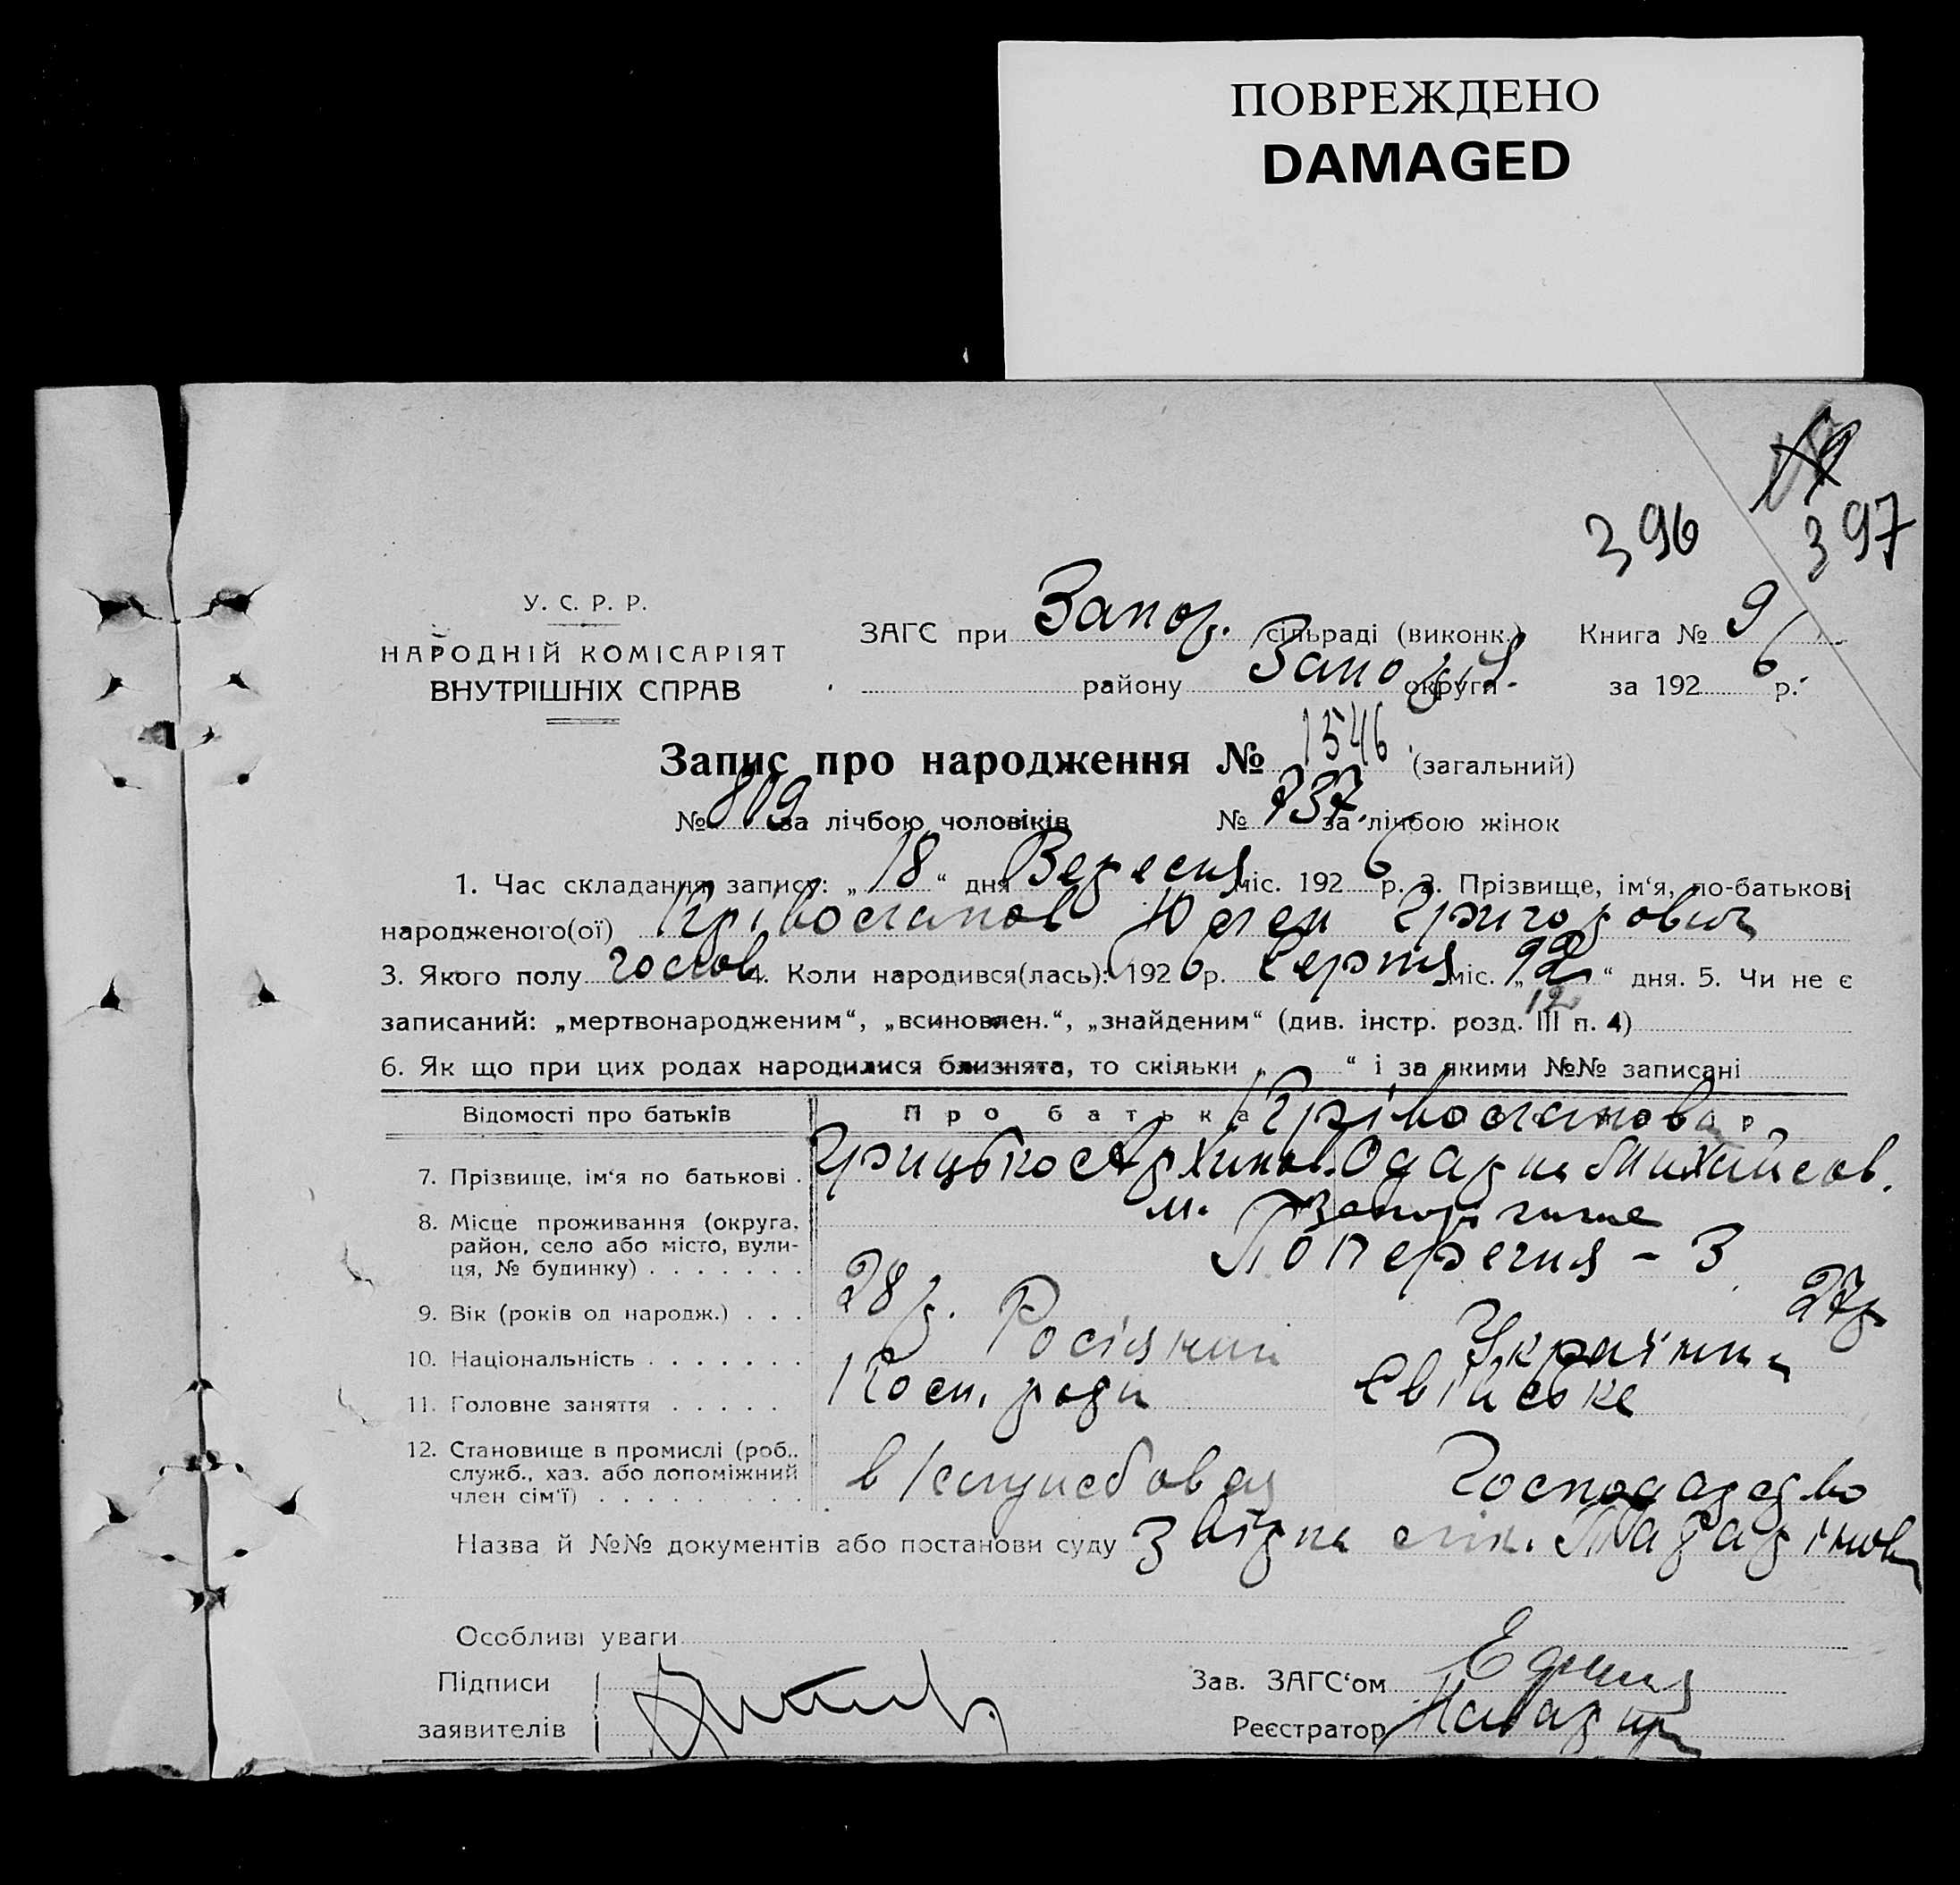 ПОВРЕЖДЕНО
DAMAGED
396
397
У. С. Р. Р.
НАРОДНІЙ КОМІСАРІЯТ
ВНУТРІШНІХ СПРАВ
ЗАГС при Запор. сільраді (виконк.) Книга № 9
району Запоріз. округи за 1926 р.
Запис про народження № 1546 (загальний)
№ 809 за лічбою чоловіків № 737 за лічбою жінок
1. Час складання запису: „18“ дня Вересня міс. 1926 р. 2. Прізвище, ім‘я, по-батькові
народженого(ої) Кривостапов Григорович
3. Якого полу чолов 4. Коли народився(лась): 1926 р. Серпня міс. „ “ дня. 5. Чи не є
12
записаний: „мертвонародженим“, „всиновлен.“, „знайденим“ (див. інстр. розд. III п. 4)
6. Як що при цих родах народилися близнята, то скільки „ “ і за якими №№ записані
Відомості про батьків Про батька
7. Прізвище, ім‘я по батькові . Грицько Архипов. Одарка Михайлов.
8. Місце проживання (округа, м. Запоріжже
район, село або місто, вули-
ця, № будинку) . . . . . . . Поперечня - 3
9. Вік (років од народж.) . . . 28 р. 27 р
10. Національність . . . . . . . Українк
11. Головне заняття . . . . . Свійське
12. Становище в промислі (роб.,
служб., хаз. або допоміжний
член сім‘ї) . . . . . . . . . Господарство
Назва й №№ документів або постанови суду
Особливі уваги
Підписи Зав. ЗАГС‘ом
заявителів Реєстратор